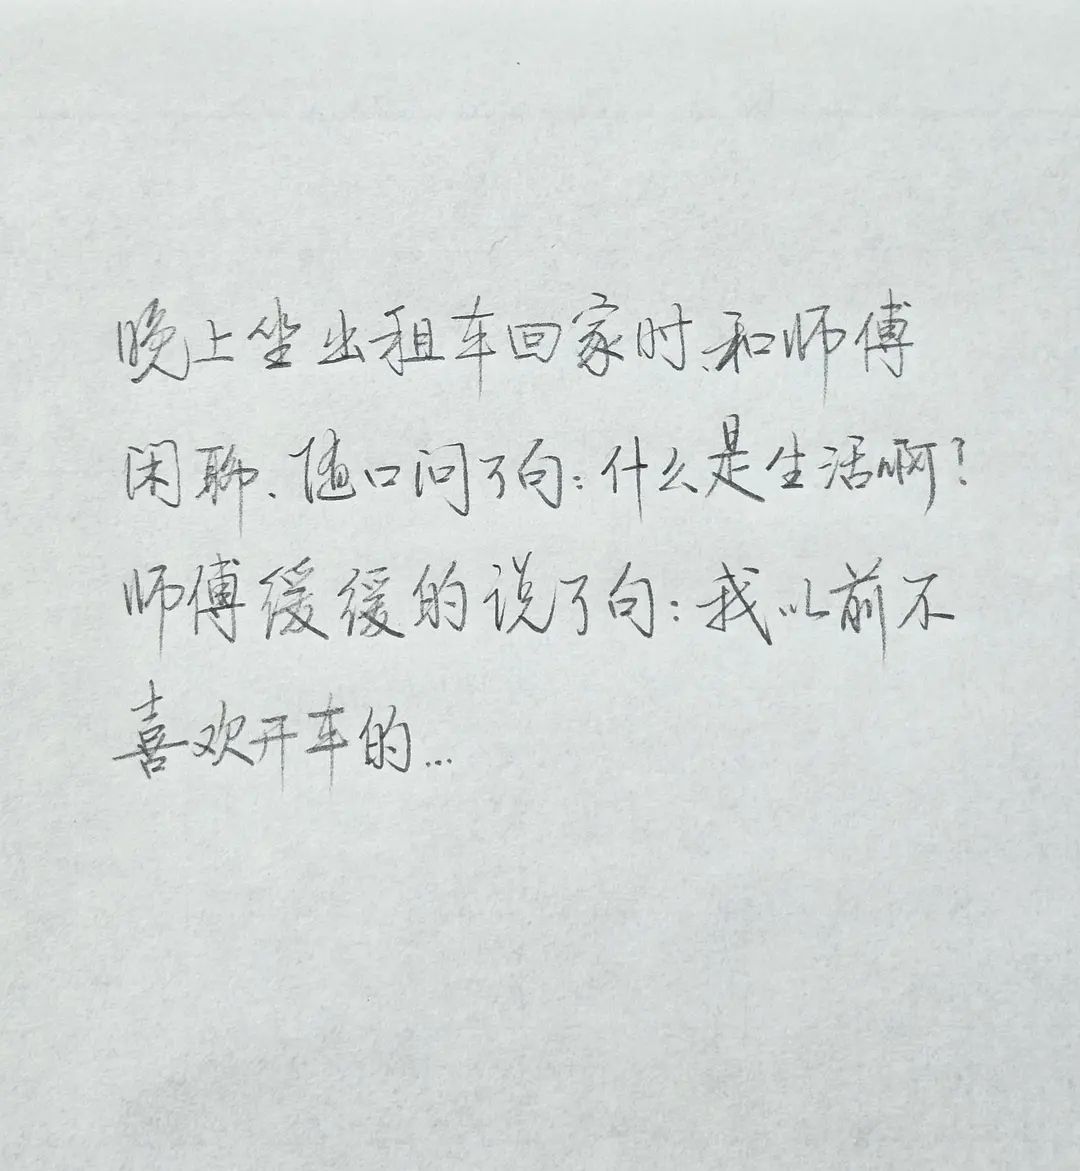 晚上坐出租车回家时、和师傅
闲聊、随口问了句：什么是生活啊？
师傅缓缓的说了句：我以前不
喜欢开车的...